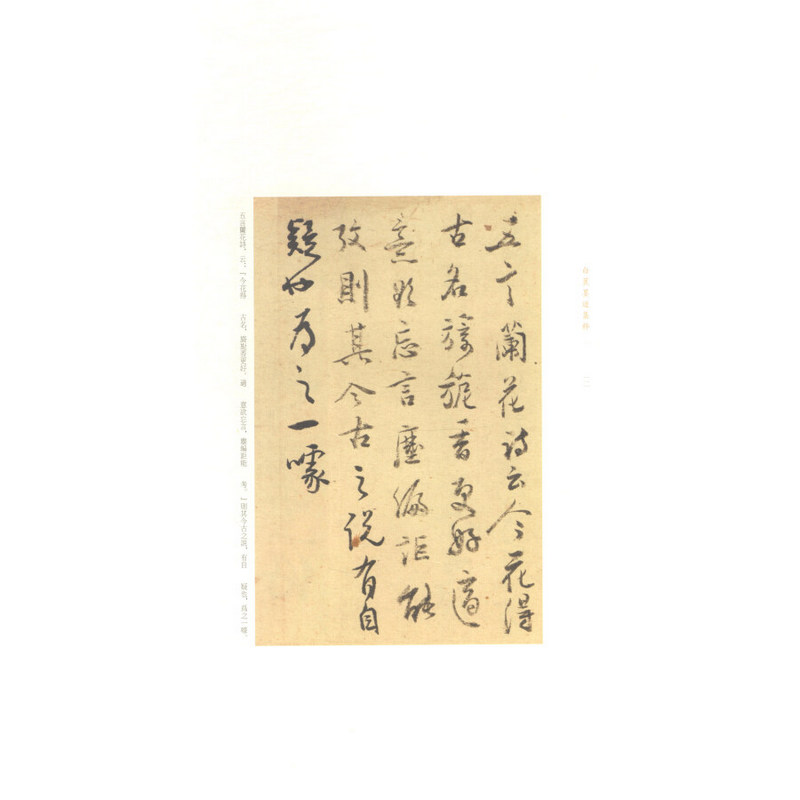 五言蘭花詩云今花得
古名旖旎香更好適
意欲忘言塵編詎能
攷則其今古之說有自
疑也為之一噱
五言蘭花詩。云:「今花得 古名,旖旎香更好。適 意欲忘言,塵編詎能 考。」則其今古之說,有自 疑也,為之一噱。